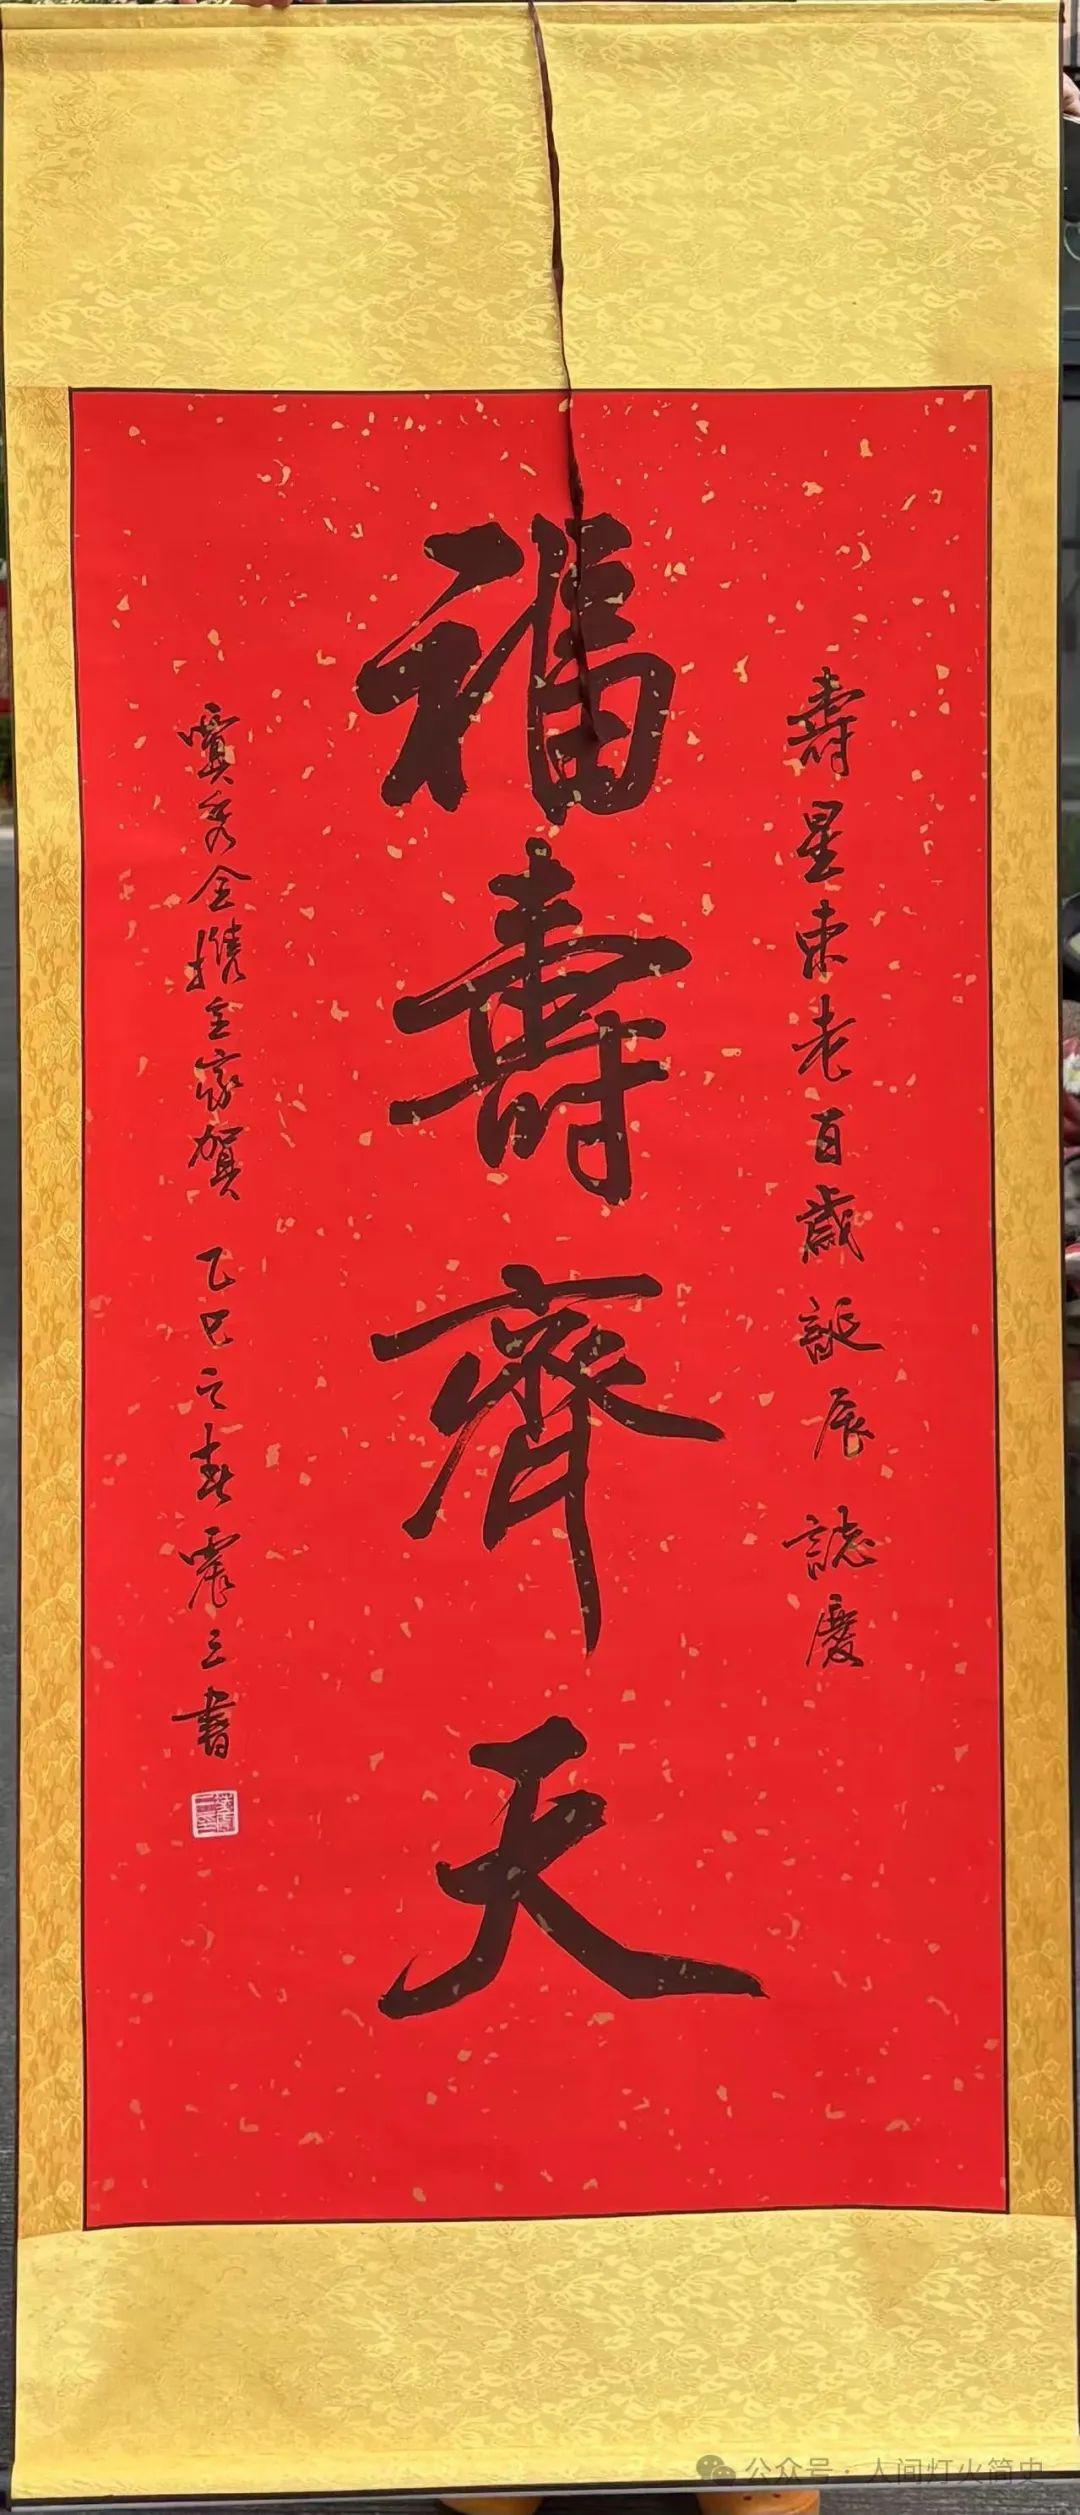 壽星東老百歲誕辰誌慶
福壽齊天
賈秀全攜全家賀 乙巳之春震三書
公众号 · 人间灯火简史